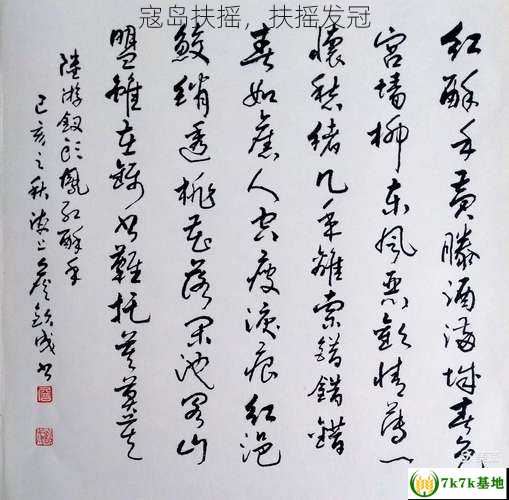 寇岛扶摇，扶摇发冠
红酥手黄滕酒满城春色
宫墙柳东风恶歡情薄一
懷愁绪几年離索错错错
春如舊人空瘦淚痕红浥
鲛绡透桃花落闲池阁山
盟雖在锦书難托莫莫莫
陸游钗头鳳红酥手
己亥之秋
7k7k基地